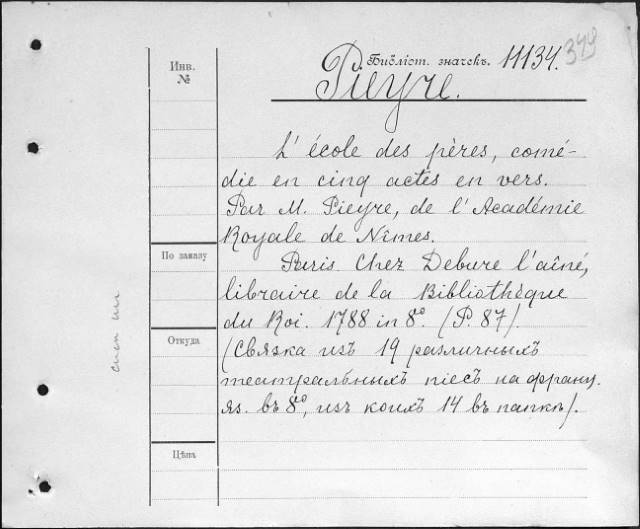 Инв.
№
Библіот. значекъ. 11134.
379
Pieyre.
L'école des pères, comé-
die en cinq actes en vers.
Par M. Pieyre, de l'Académie
Royale de Nîmes.
По заказу
Paris Chez Debure l'aîné,
libraire de la Bibliothèque
du Roi. 1788 in 8°. (P. 87).
Откуда
(Связка изъ 19 различныхъ
театральныхъ піесъ на франц.
яз. въ 8°, изъ коихъ 14 въ папкѣ).
Цѣна